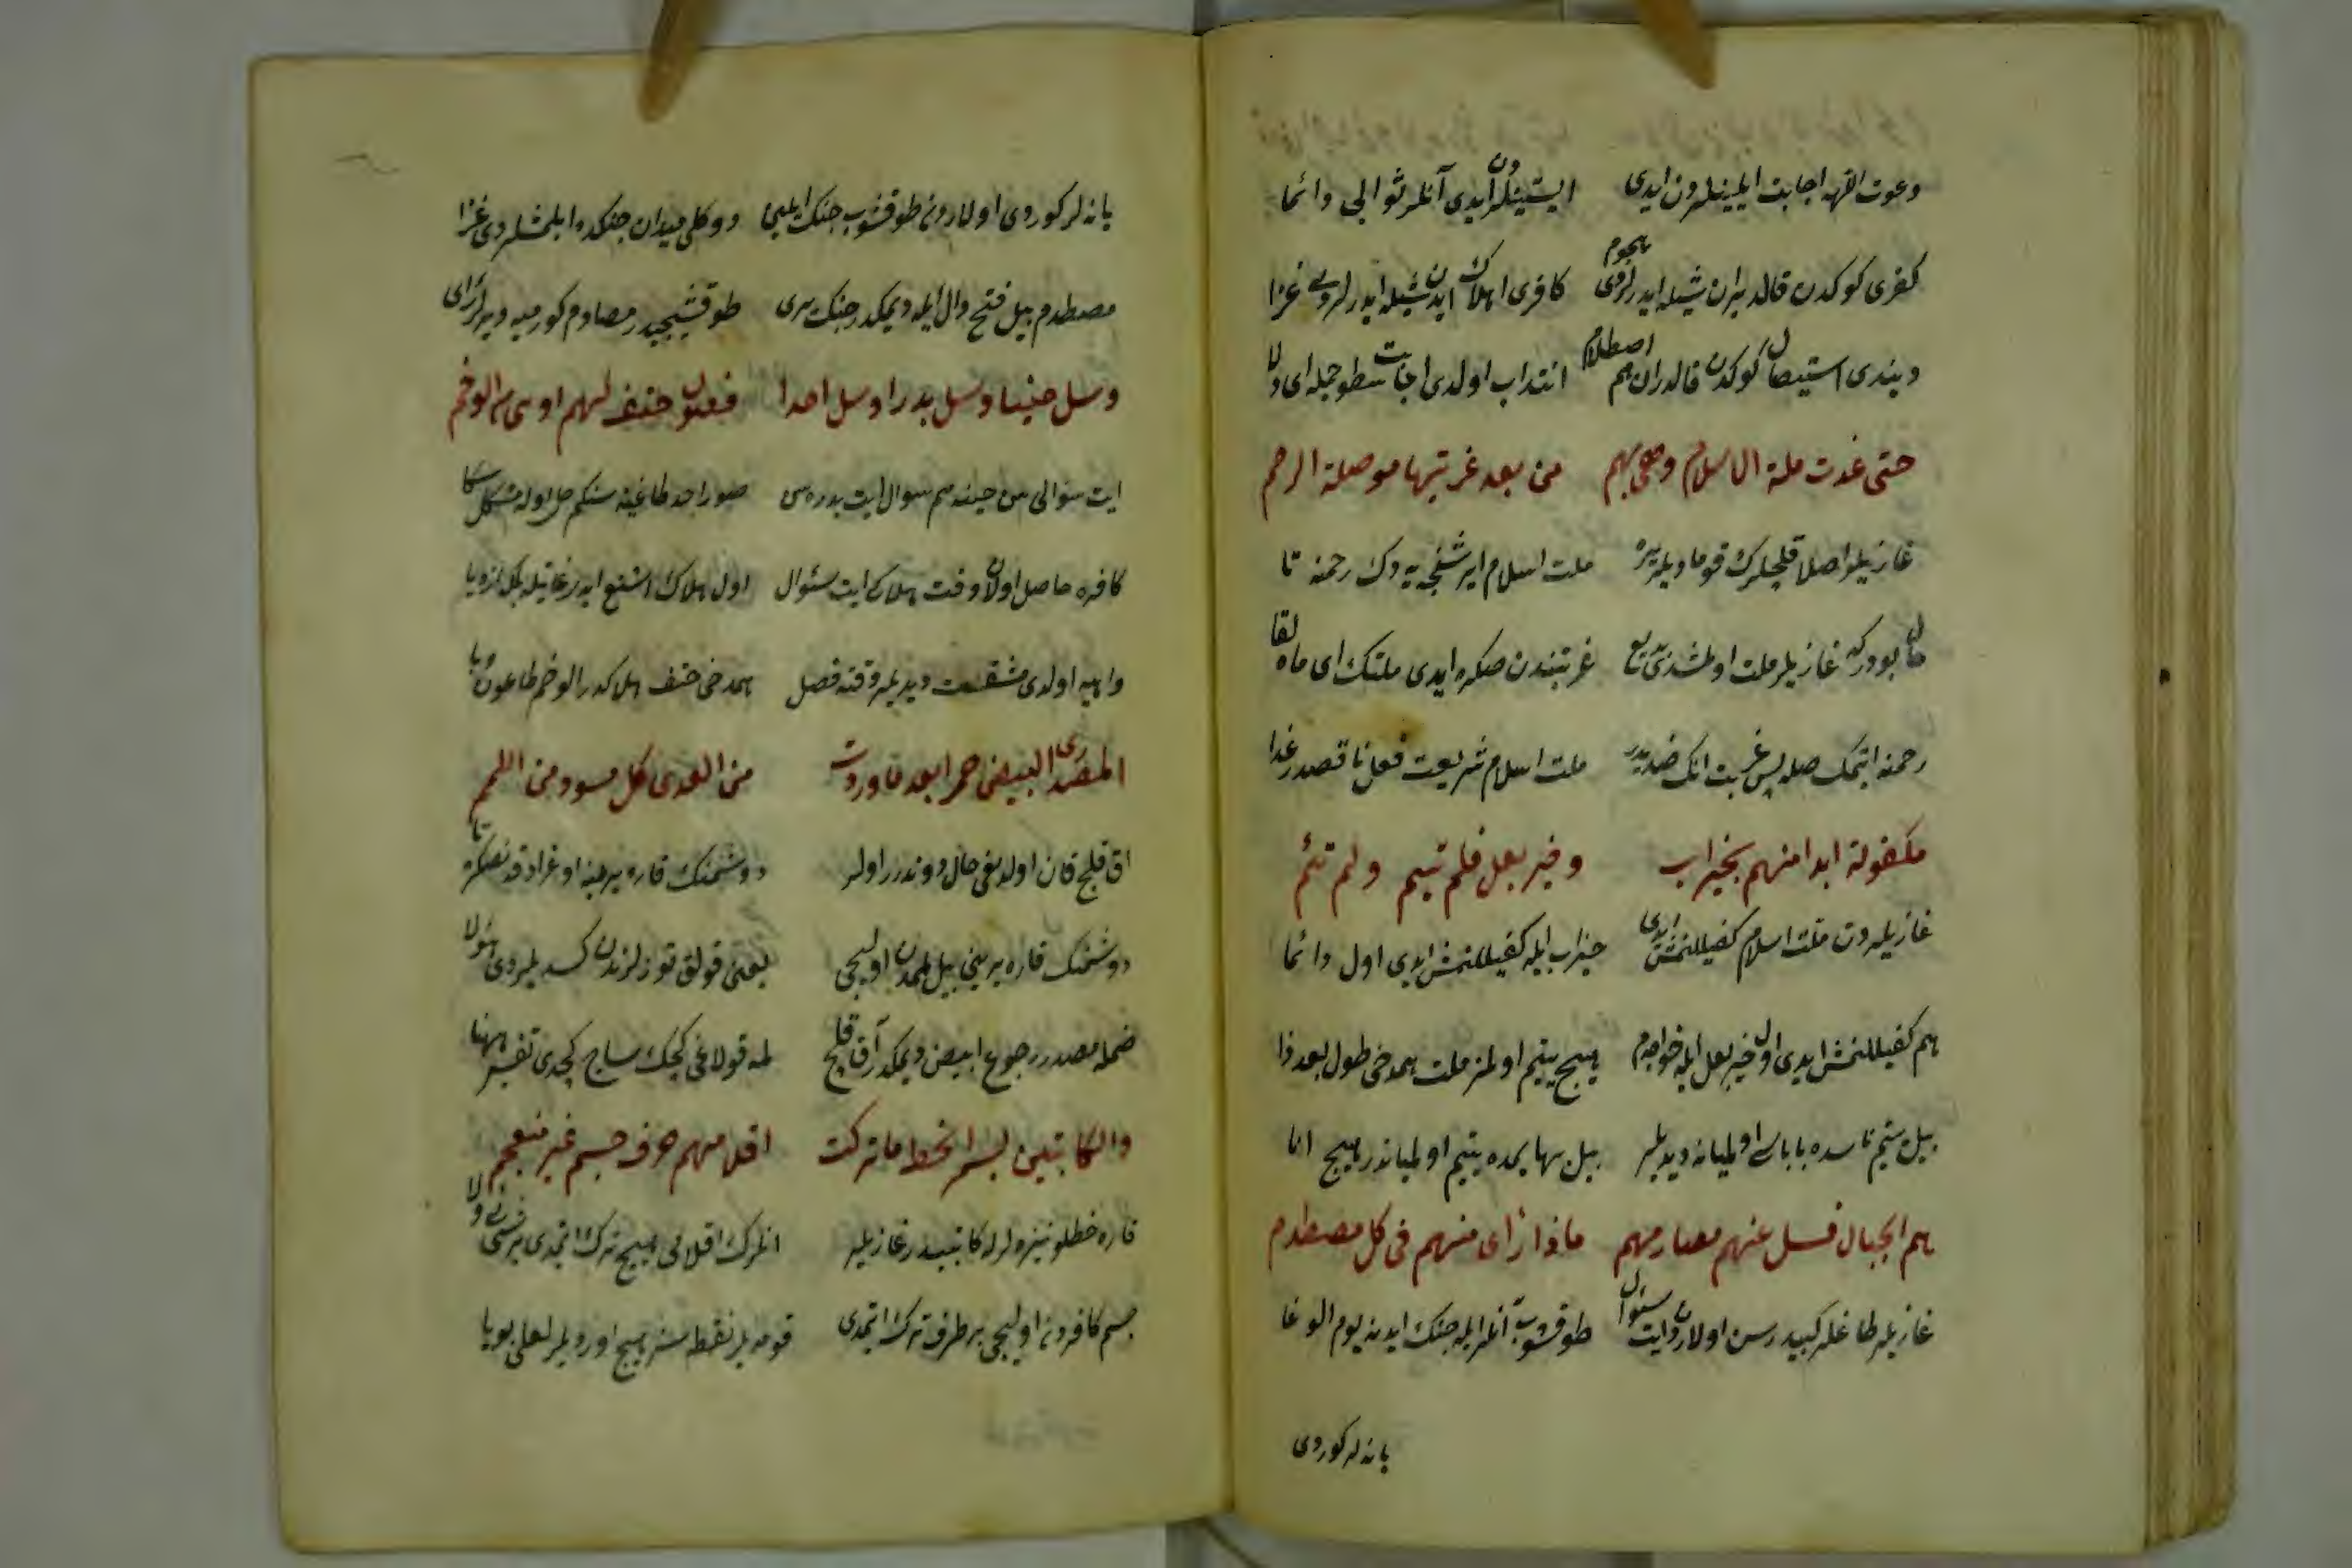 دعوت اللهه اجابت ایلینلردن ایدی ایستینلردن ایدی آنلر ثوابی دائما
کفری کوکدن قالدیران شیله ایدرلردی هجوم کافری اهلاک ایدن شیله ایدرلردی غزا
دیندی استیصال کوکدن قالدران هم اصطلام انتداب اولدی اجابت سطو حمله ای ولا
حتی غدت ملة الاسلام وهی بهم من بعد غربتها موصلة الرحم
ملت اسلام ایرشنجه یه دک رحمنه تا
غازیلر ملت غربتندن صکره ایدی ملتک ای ماه لقا
رحمنه ایتمک صله پس غربت انک ضدیدر ملت اسلام شریعت فعل ناقصدر غدا
مکفولة ابدا منهم بخیر اب وخیر بعل فلم تیتم ولم تئم
غازیلردن ملت اسلام کفیللنمش ایدی خیر اب ایله کفیللنمش ایدی اول دائما
هم کفیللنمش ایدی اول خیر بعل ایله خواجم هیچ یتیم اولمز ملت همدخی طول بعد ذا
بیل یتیم ناسده باباسی اولمیانه دیدیلر بیل بهایمده یتیم اولمیاندر هیچ انا
هم الجبال فسل عنهم مصادمهم ماذا رأی منهم فی کل مصطدم
غازیلر طاغلر کبیدر سن اولاردن ایت سئوال طوقشوب آنلر ایله جنک ایدنه یوم الوغا
یا نه لر کوردی
یا نه لر کوردی اولاردن طوقشوب جنک ایلین دوکلی میدان جنکده ایلمشلردی غزا
مصطدم بیل فتح دال ایله دیمکدر جنک یری طوقشیجیدر مصادم کورمیه دیرلر رأی
وسل حنینا وسل بدرا وسل احدا فصول حتف لهم ادهی من الوخم
ایت سئوالی سن حنینه هم سوال ایت بدره سن صور احد طاغینه سنکم حل اوله مشکل سکا
کافره حاصل اولان وقت هلاکی ایت سئوال
همدخی حتف هلاکدر الوخم طاعون وبا
المصدری البیض حمرا بعد ما وردت من العدی کل مسود من اللمم
اق قلج قان اولدیغی حال دوندرر اولر دوشمنک قاره یرینه اوغرادقدنصکره تا
دوشمنک قاره یرینی بیل لممدن اولیجی یعنی قولق توزلرندن کسدیلردی شولا
ضمله مصدر رجوع ابیض دیمکدر آق قلج لمه قولاغی کچک ساج کچدی تفسیر ههنا
والکاتبین بسمر الخط ما ترکت اقلامهم حرف جسم غیر منعجم
قاره خطلو نیزه لرله کاتبیدر غازیلر انلرک اقلامی هیچ ترک ایتمدی
جسم کافردن اولیجی بر طرف ترک ایتمدی قومدیلر نقطه سز هیچ اوردیلر لعلی بویا